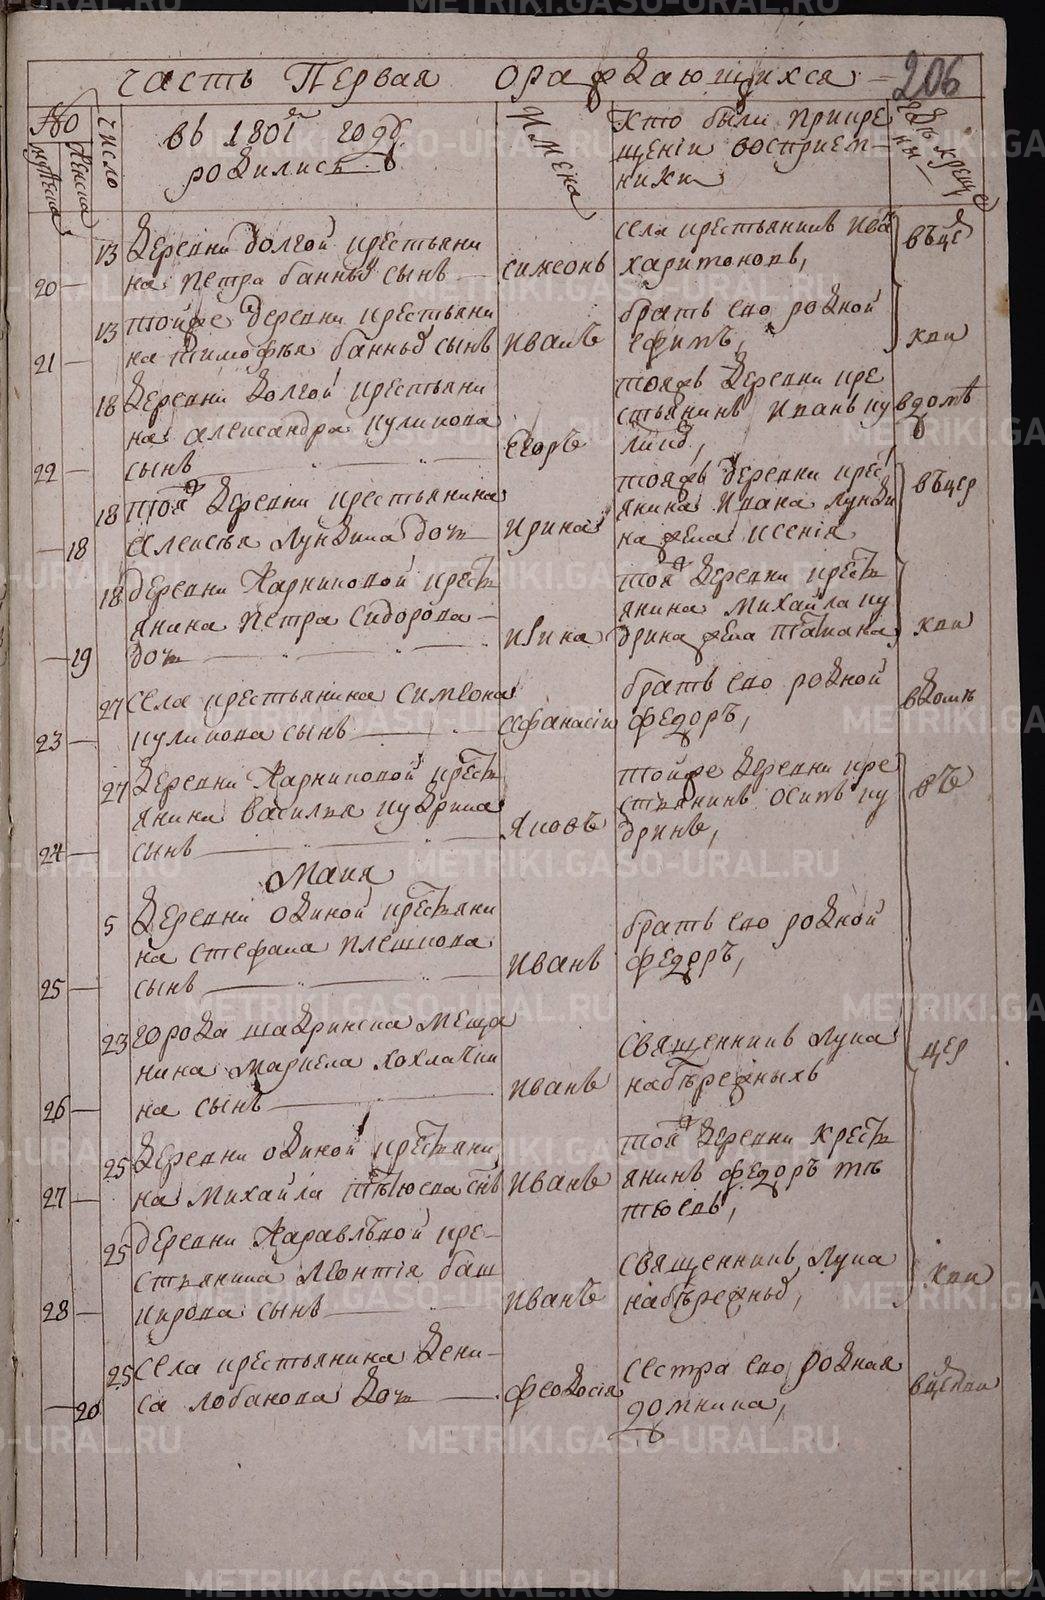 часть Первая ораждающихся
206
No
мужеска
женска
число
въ 1801м году
родились
Имена
Кто были прикре
щеніи восприем-
ники
20 — 13 Деревни Долгой крестьяни
на Петра Банныхъ сынъ — Симеонъ
села крестьянинъ Ива
Харитоновъ,
въ це
21 — 13 тойже деревни крестьяни
на Тимофѣя банныхъ сынъ Иванъ
братъ ево родной
Ефимъ,
кви
22 — 18 Деревни Долгой крестьяни
на Александра Куликова
сынъ — Егоръ
тояжъ деревни кре
стьянинъ Иванъ Ку
ликовъ,
в домѣ
— 18 18 тояж деревни крестьянина
Алексѣя Лундина дочь Ирина
тояжъ деревни крест
янина Ивана Лунди
на жена Ксенія
въ цер
— 19 18 деревни Жарниковой крест
янина Петра Сидорова —
дочь — Ирина
тояж деревни крест
янина Михайла Ку
дрина жена Татиана
кви
23 — 27 Села крестьянина Симеона
Куликова сынъ — Афанасіи
братъ ево родной
Федоръ,
в домѣ
24 — 27 Деревни Жарниковой крест
янина Василья Кудрина
сынъ — Яковъ
тойже деревни кре
стьянинъ Осипъ Ку
дринъ,
въ
Маия
25 — 5 Деревни Одиной крестьяни
на Стефана Плешкова
сынъ — Иванъ
братъ ево родной
Федоръ,
26 — 23 Города Шадринска меща
нина Маркела Хохлачки
на сынъ — Иванъ
Священникъ Лука
Набѣрежныхъ
цер
27 — 25 Деревни Одиной крестьяни
на Михайла Тѣтюева снъ Иванъ
тояж деревни крест
янинъ Федоръ Тѣ
тюевъ,
28 — 25 деревни Журавлѣвой кре-
стьянина Леонтія Баш
кирова сынъ — Иванъ
Священникъ Лука
Набѣрежных,
кви
— 20 25 Села крестьянина Дени-
са Лобанова дочь — Феодосія
Сестра ево родная
Домника,
в церкви
METRIKI.GASO-URAL.RU